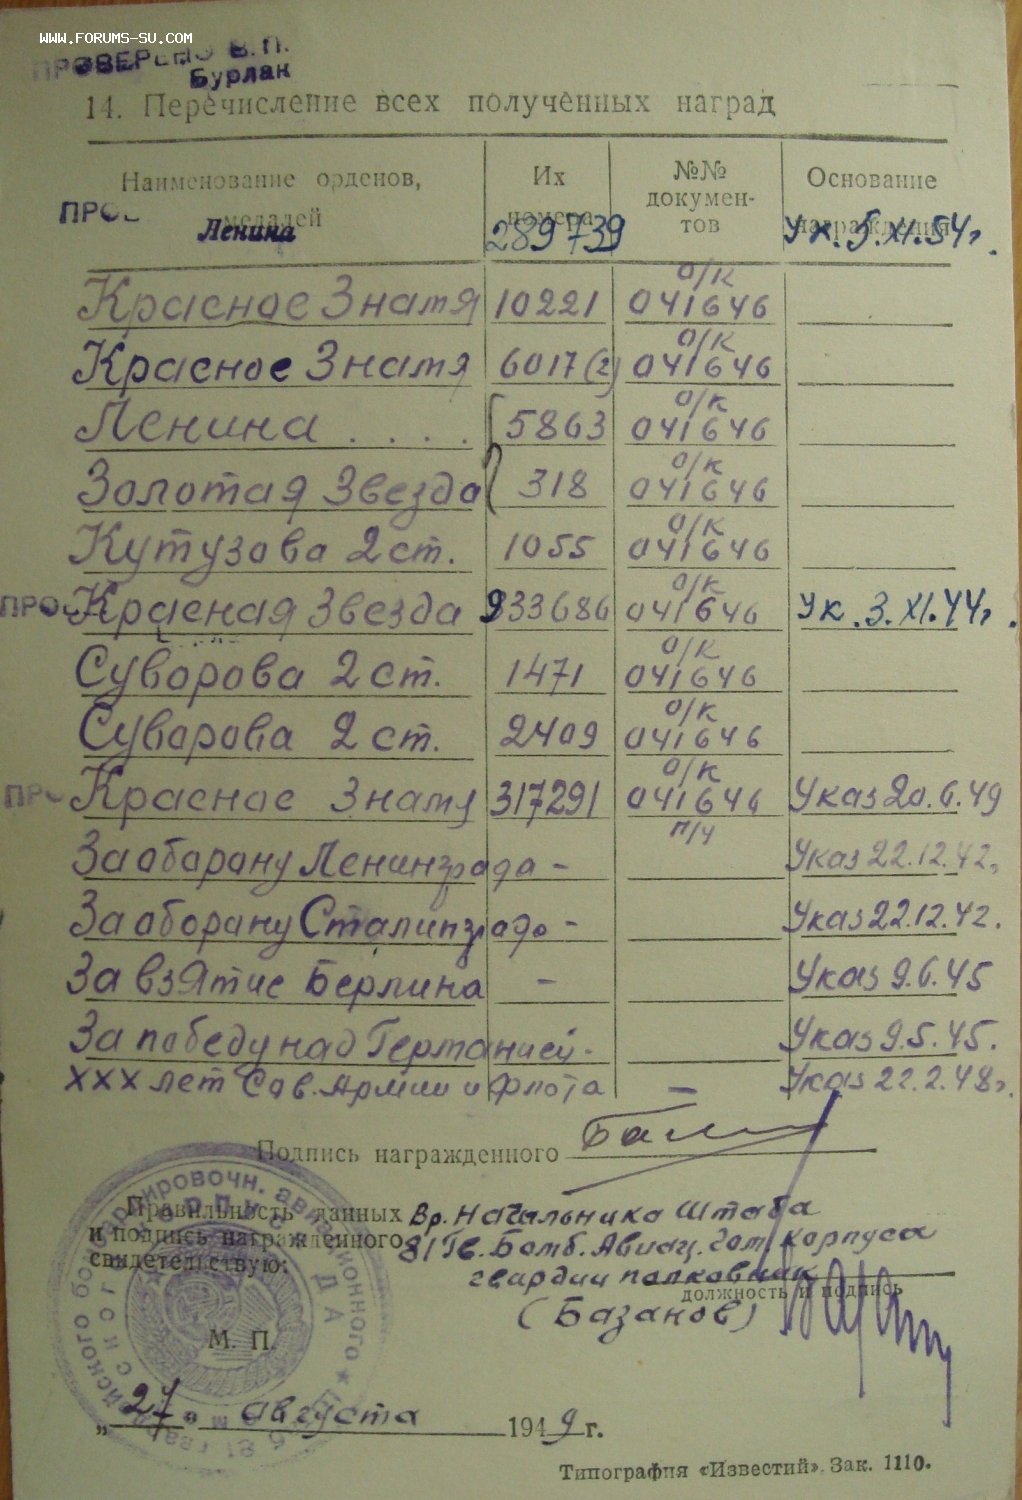 www.forums-su.com
ПРОВЕРЕНО В.П.
Бурлак
14. Перечисление всех полученных наград
Наименование орденов, медалей | Их номера | №№ докумен-тов | Основание награждения
ПРО Ленина 289739 Ук. 5.XI.54г.
Красное Знамя 10221 о/к 041646
Красное Знамя 6017(2) о/к 041646
Ленина . . . . 5863 о/к 041646
Золотая Звезда 318 о/к 041646
Кутузова 2 ст. 1055 о/к 041646
ПРО Красная Звезда 933686 о/к 041646 Ук. 3.XI.44г.
Суворова 2 ст. 1471 о/к 041646
Суворова 2 ст. 2409 о/к 041646
ПРО Красное Знамя 317291 о/к 041646 Указ 20.6.49
п/ч
За оборону Ленинграда - Указ 22.12.42г.
За оборону Сталинграда - Указ 22.12.42.
За взятие Берлина - Указ 9.6.45
За победу над Германией - Указ 9.5.45.
XXX лет Сов. Армии и флота - Указ 22.2.48г.
Подпись награжденного
Правильность данных Вр. Начальника Штаба
и подпись награжденного 81 Гв. Бомб. Авиац. корпуса
свидетельствую: гвардии полковник
должность и подпись
(Базанов)
М. П.
„27" августа 1949 г.
Типография «Известий». Зак. 1110.